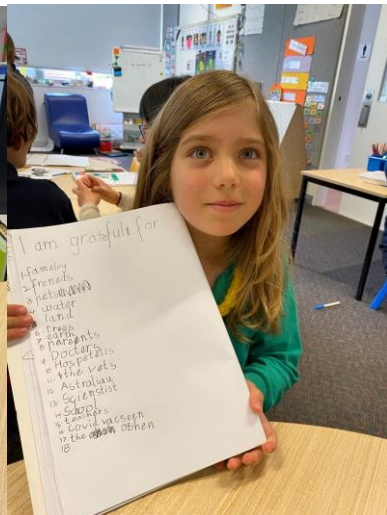 I am gratefule for
1. fameley
2. freneds
3. pets
4. water
5. land
6. trees
7. earth
8. parents
9. Docters
10. Hospetels
11. the vets
12. Astraliau
13. Scienstist
14. School
15. teachers
16. covid vacseen
17. the oshen
18.